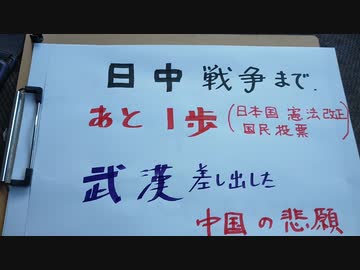 日中戦争まで.
あと1歩(日本国憲法改正
国民投票)
武漢差し出した
中国の悲願